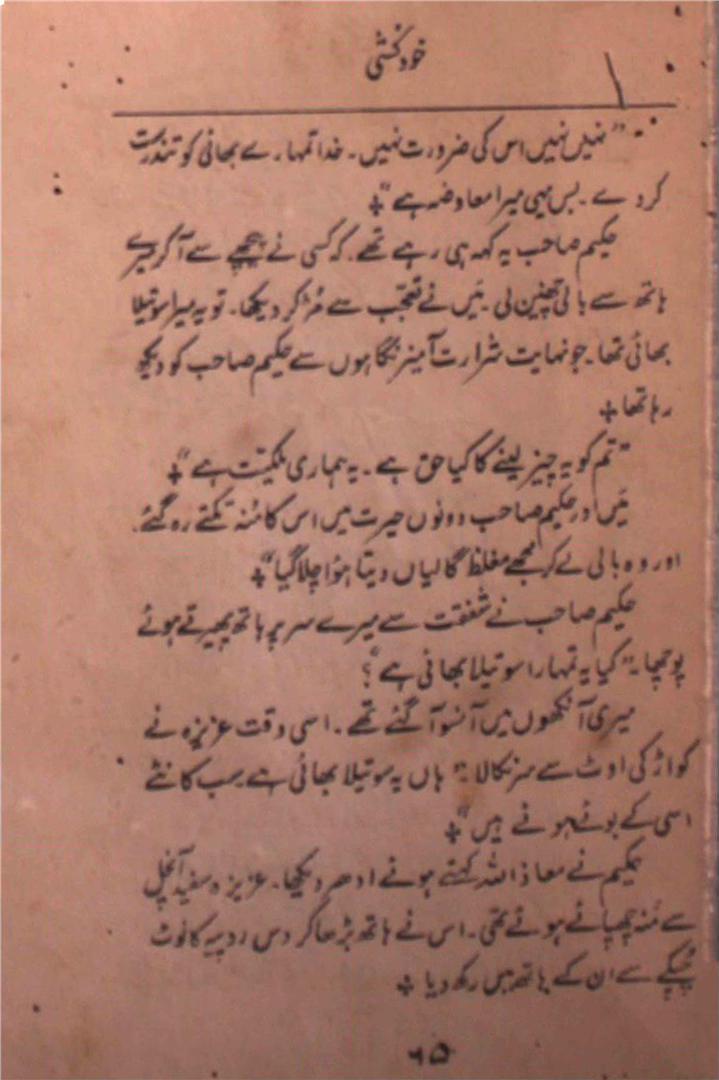 خودکشی
"نہیں نہیں اس کی ضرورت نہیں۔ خدا تمہارے بھائی کو تندرست
کردے۔ بس یہی میرا معاوضہ ہے"۔
حکیم صاحب یہ کہہ ہی رہے تھے۔ کہ کسی نے پیچھے سے آکر میرے
ہاتھ سے بالی چھین لی۔ میں نے تعجب سے مُڑ کر دیکھا۔ تو یہ میرا سوتیلا
بھائی تھا۔ جو نہایت شرارت آمیز نگاہوں سے حکیم صاحب کو دیکھ
رہا تھا۔
"تم کو یہ چیز لینے کا کیا حق ہے۔ یہ ہماری ملکیّت ہے"۔
میَں اور حکیم صاحب دونوں حیرت میں اس کا مُنہ تکتے رہ گئے۔
اور وہ بالی لے کر مجھے مغلظ گالیاں دیتا ہؤا چلا گیا"۔
حکیم صاحب نے شفقت سے میرے سر پر ہاتھ پھیرتے ہوئے
پوچھا۔" کیا یہ تمہارا سوتیلا بھائی ہے"؟
میری آنکھوں میں آنسو آگئے تھے۔ اسی وقت عزیزہ نے
کواڑ کی اوٹ سے سر نکالا۔" ہاں یہ سوتیلا بھائی ہے سب کانٹے
اسی کے بوئے ہوئے ہیں"۔
حکیم نے معاذ اللہ کہتے ہوئے ادھر دیکھا۔ عزیزہ سفید آنچل
سے مُنہ چھپائے ہوئے تھی۔ اس نے ہاتھ بڑھا کر دس روپیہ کا نوٹ
چُپکے سے ان کے ہاتھ میں رکھ دیا۔
۶۵